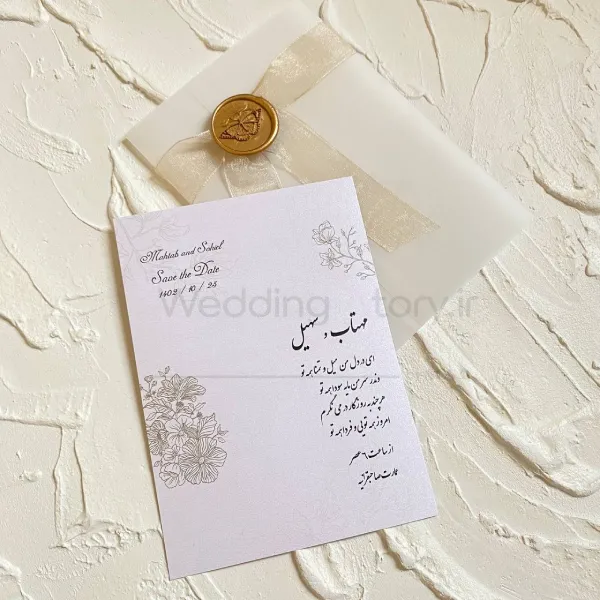 Mahtab and Soheil
Save the Date
1402 / 10 / 25
Wedding Story.ir
مهتاب و سهیل
ای در دل من میل و تمنا همه تو
وندر سر من مایه سودا همه تو
هر چند به روزگار در می نگرم
امروز همه تویی و فردا همه تو
از ساعت ۶ عصر
عمارت صاحبقرانیه